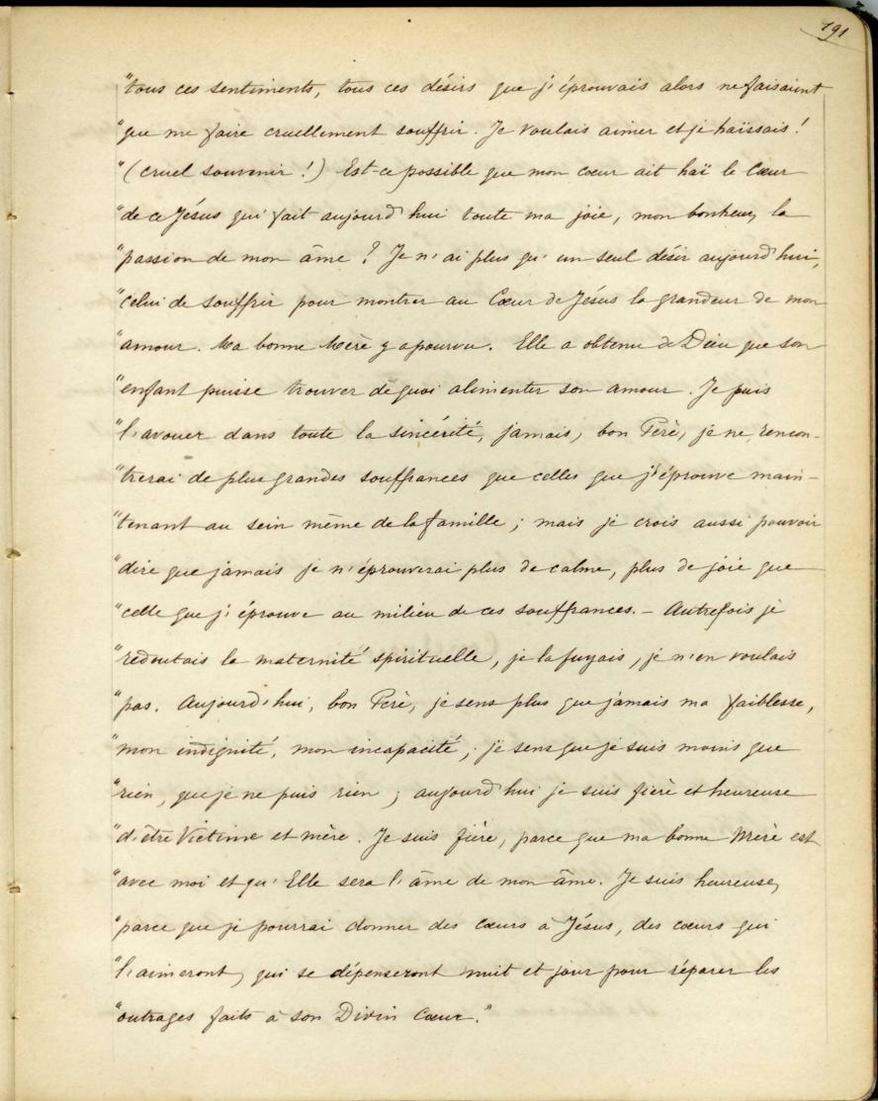 191
"tous ces sentiments, tous ces désirs que j'éprouvais alors ne faisaient
"que me faire cruellement souffrir. Je voulais aimer et je haïssais!
"(cruel souvenir!) Est-ce possible que mon coeur ait haï le Cœur
"de ce Jésus qui fait aujourd'hui toute ma joie, mon bonheur, la
"passion de mon âme? Je n'ai plus qu'un seul désir aujourd'hui,
"celui de souffrir pour montrer au Cœur de Jésus la grandeur de mon
"amour. Ma bonne Mère y a pourvu. Elle a obtenu de Dieu que son
"enfant puisse trouver de quoi alimenter son amour. Je puis
"l'avouer dans toute la sincérité, jamais, bon Père, je ne rencon-
"trerai de plus grandes souffrances que celles que j'éprouve main-
"tenant au sein même de la famille; mais je crois aussi pouvoir
"dire que jamais je n'éprouverai plus de calme, plus de joie que
"celle que j'éprouve au milieu de ces souffrances. - Autrefois je
"redoutais la maternité spirituelle, je la fuyais, je n'en voulais
"pas. Aujourd'hui, bon Père, je sens plus que jamais ma faiblesse,
"mon indignité, mon incapacité; je sens que je suis moins que
"rien, que je ne puis rien; aujourd'hui je suis fière et heureuse
"d'être Victime et mère. Je suis fière, parce que ma bonne Mère est
"avec moi et qu'Elle sera l'âme de mon âme. Je suis heureuse,
"parce que je pourrai donner des cœurs à Jésus, des cœurs qui
"l'aimeront, qui se dépenseront nuit et jour pour réparer les
"outrages faits à son Divin Cœur."